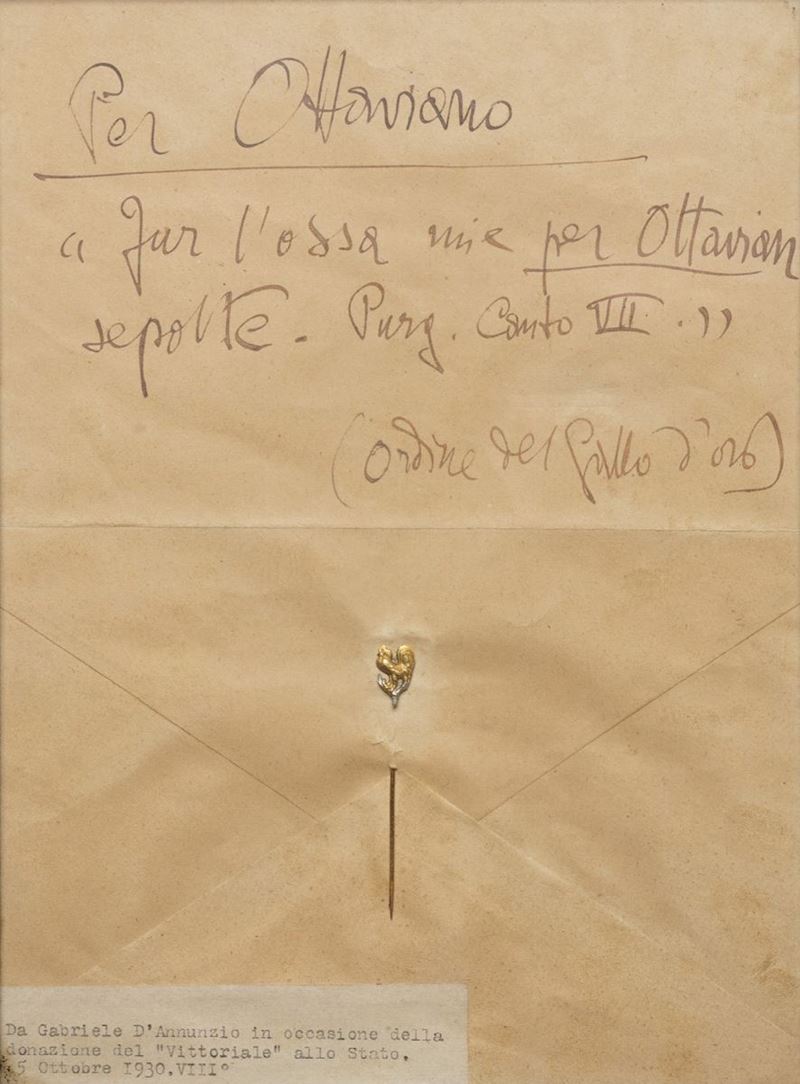 Per Ottaviano
“ Fur l'ossa mie per Ottavian
sepolte. Purg. Canto VII. ”
(Ordine del Gallo d'oro)
Da Gabriele D'Annunzio in occasione della
donazione del "Vittoriale" allo Stato.
5 Ottobre I930.VIII°